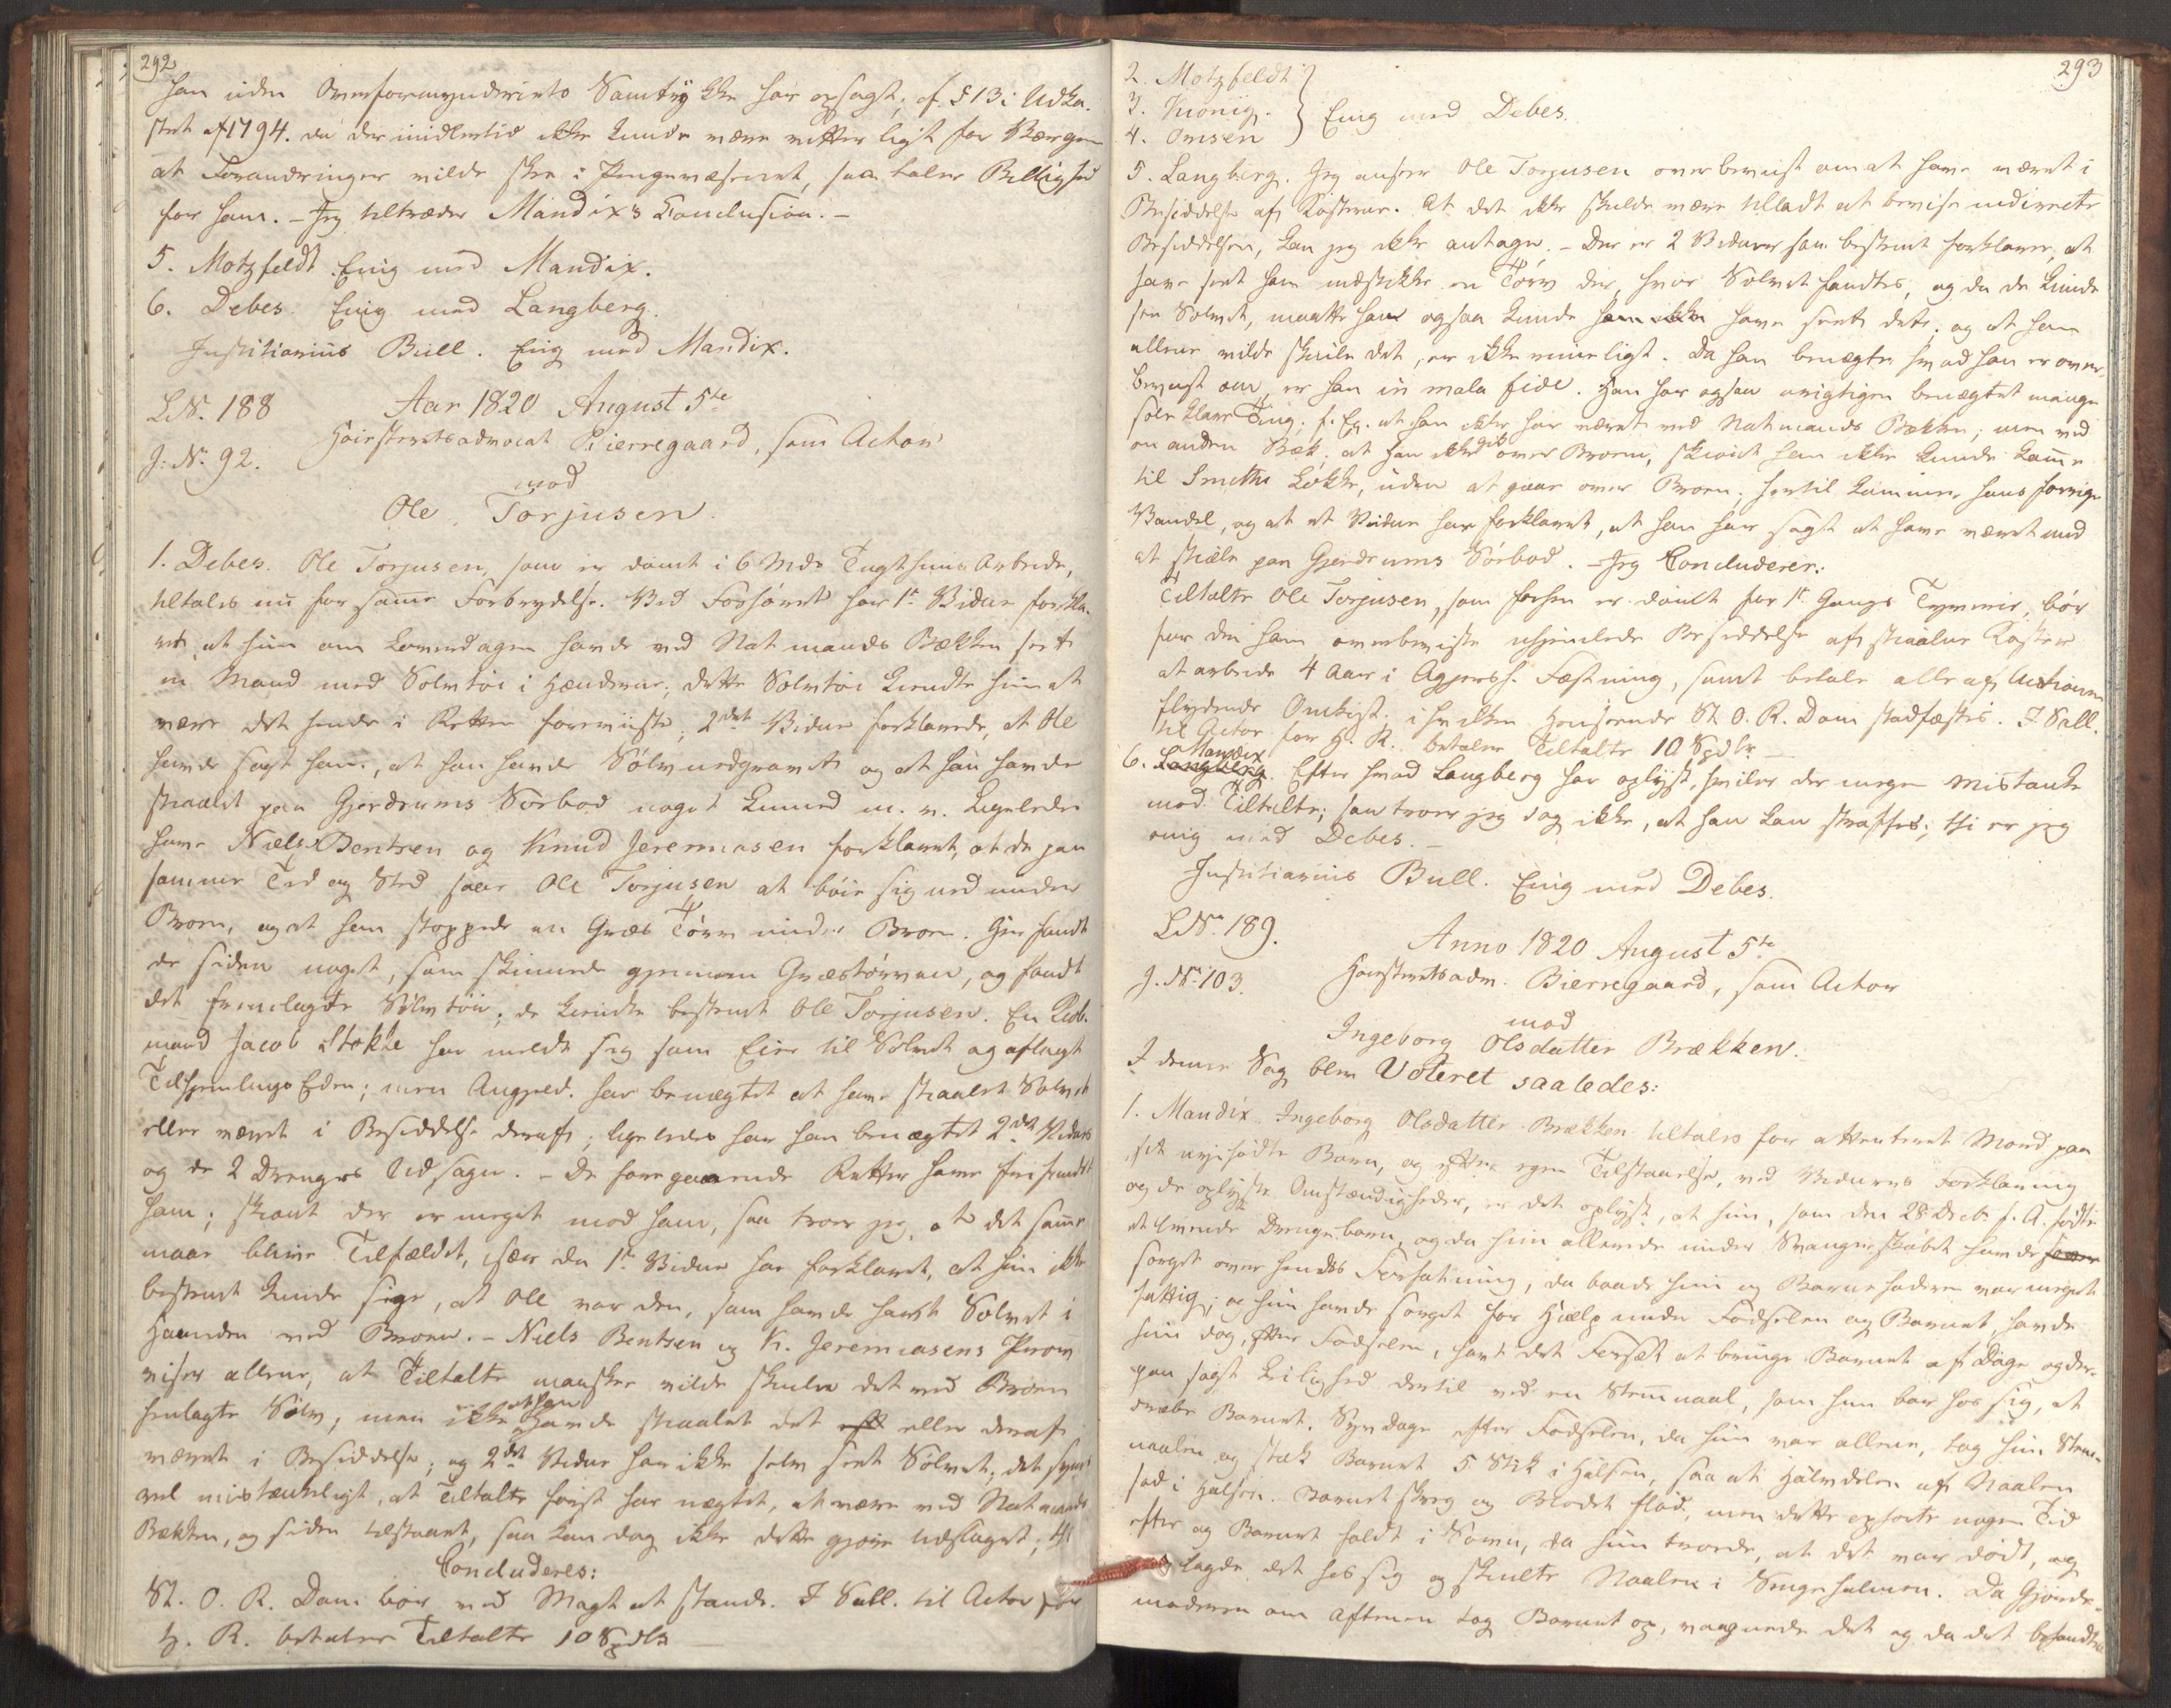 292
han uden Overformynderiets Samtykke har opsagt, cf. § 13 i Udka-
stet af 1794. da der imidlertid ikke kunde være vitterligt for Værgen
at Forandringer vilde skee i Pengevæsenet, saa taler Billighed
for ham. - Jeg tiltræder Mandix's Conclusion. -
5. Motzfeldt. Enig med Mandix.
6. Debes. Enig med Langberg.
Justitiarius Bull. Enig med Mandix.
L.N. 188 Aar 1820 August 5te
J: No. 92. Høiesteretsadvocat Bierregaard, som Actor
mod
Ole Torjusen.
1. Debes. Ole Torjusen, som er dømt i 6 Mdrs Tugthuus Arbeide,
tiltales nu for samme Forbrydelse. Ved Forhøret har 1te Vidne forkla-
ret, at hun om Loverdagen havde ved Natmands Bækken seet
en Mand med Sølvtøi i Hænderne; dette Sølvtøi kiendte hun at
være det hende i Retten foreviiste; 2det Vidne forklarede, at Ole
havde sagt ham, at han havde Sølv nedgravet og at han havde
stiaalet paa Gjerdrums Sørbod noget Linned m. v. Ligeledes
have Niels Bentsen og Knud Jeremiasen forklaret, at de paa
samme Tid og Sted saae Ole Torjusen at bøie sig ned under
Broen, og at han stoppede en Græs Tørv under Broen. Her fandt
de siden noget, som skinnede gjennem Græstørven, og fandt
det fremlagte Sølvtøi; de kiendte bestemt Ole Torjusen. En Kiøb-
mand Jacob Stokke har meldt sig som Eier til Sølvet og aflagt
Tilhjemlings Eden; men Angjeld. har benægtet at have stiaalet Sølvet
eller været i Besiddelse deraf; ligeledes har han benægtet 2det Vidnes
og de 2 Drenges Udsagn. - De foregaaende Retter have frifundet
ham; skiønt der er meget mod ham, saa troer jeg, at det samme
maae blive Tilfældet, især da 1te Vidne har forklaret, at hun ikke
bestemt kunde sige, at Ole var den, som havde havt Sølvet i
Haanden ved Broen. - Niels Bentsen og K. Jeremiasens Prov
viser allene, at Tiltalte maaskee vilde skiule det ved Broen
henlagte Sølv, men ikke at han havde stiaalet det eller deraf
været i Besiddelse; og 2det Vidne har ikke selv seet Sølvet; det synes
vel mistænkeligt, at Tiltalte først har nægtet, at være ved Natmands
Bækken, og siden tilstaaet, saa kan dog ikke dette gjøre Udslaget; thi
Concluderes:
St. O. R. Dom bør ved Magt at stande. I Sall. til Actor for
H. R. betaler Tiltalte 10 Spdlr
293
2. Motzfeldt
3. Kiønig.
4. Omsen
Enig med Debes.
5. Langberg. Jeg anseer Ole Torjusen overbeviist om at have været i
Besiddelse af Kosterne. At det ikke skulde være tilladt at bevise indirecte
Besiddelsen, kan jeg ikke antage. - Der er 2 Vidner som bestemt forklarer, at
have seet ham nedstikke en Tørv der, hvor Sølvet fandtes, og da de kunde
see Sølvet, maatte han ogsaa kunde have seet det; og at han
allene vilde skiule det, er ikke rimeligt. Da han benægter hvad han er over-
beviist om, er han in mala fide. Han har ogsaa urigtigen benægtet mange
soleklare Ting. f. Ex. at han ikke har været ved Natmands Bækken; men ved
en anden Bæk; at han ikke gik over Broen, skiøndt han ikke kunde komme
til Smeths Løkke, uden at gaae over Broen; hertil kommer hans forrige
Vandel, og at et Vidne har forklaret, at han har sagt at have været med
at stiæle paa Gjerdrums Sørbod. - Jeg Concluderer:
Tiltalte Ole Torjusen, som forhen er dømt for 1te Gangs Tyverie, bør
for den ham overbeviste uhjemlede Besiddelse af stiaalne Koster
at arbeide 4 Aar i Aggersh. Fæstning, samt betale alle af Actionen
flydende Omkost. i hvilken Henseende St. O. R. Dom stadfæstes. I Sall.
til Actor for H. R. betaler Tiltalte 10 Spdlr
6. Mandix. Efter hvad Langberg har oplyst, hviler der megen Mistanke
mod Tiltalte; saa troer jeg dog ikke, at han kan straffes; thi er jeg
enig med Debes. -
Justitiarius Bull. Enig med Debes.
L.No. 189. Anno 1820 August 5te
J. No. 103. Høiesteretsadv. Bierregaard, som Actor
mod
Ingeborg Olsdatter Brækken.
I denne Sag blev Voteret saaledes:
1. Mandix. Ingeborg Olsdatter Brækken tiltales for attenteret Mord paa
sit nyefødte Barn, og efter egen Tilstaaelse, ved Vidners Forklaring
og de oplyste Omstændigheder, er det oplyst, at hun, som den 28 Decbr f. A. fødte
et levende Drengebarn, og da hun allerede under Svangerskabet havde
sørget over hendes Forfatning, da baade hun og Barnefaderen var meget
fattig; og hun havde sørget for Hjælp under Fødselen og Barnet, havde
hun dog, efter Fødselen, havt det Forsæt at bringe Barnet af Dage og der-
paa søgt Leilighed dertil ved en Stemnaal, som hun bar hos sig, at
dræbe Barnet. Syv Dage efter Fødselen, da hun var allene, tog hun Stem-
naalen og stak Barnet 5 Stik i Halsen, saa at Halvdelen af Naalen
sad i Halsen. Barnet skreg og Blodet flød, men dette ophørte nogen Tid
efter og Barnet faldt i Søvn, da hun troede, at det var dødt, og
lagde det hos sig og skiulte Naalen i Sengehalmen. Da Gjorde-
moderen om Aftenen tog Barnet op, vaagnede det og da det befandtes